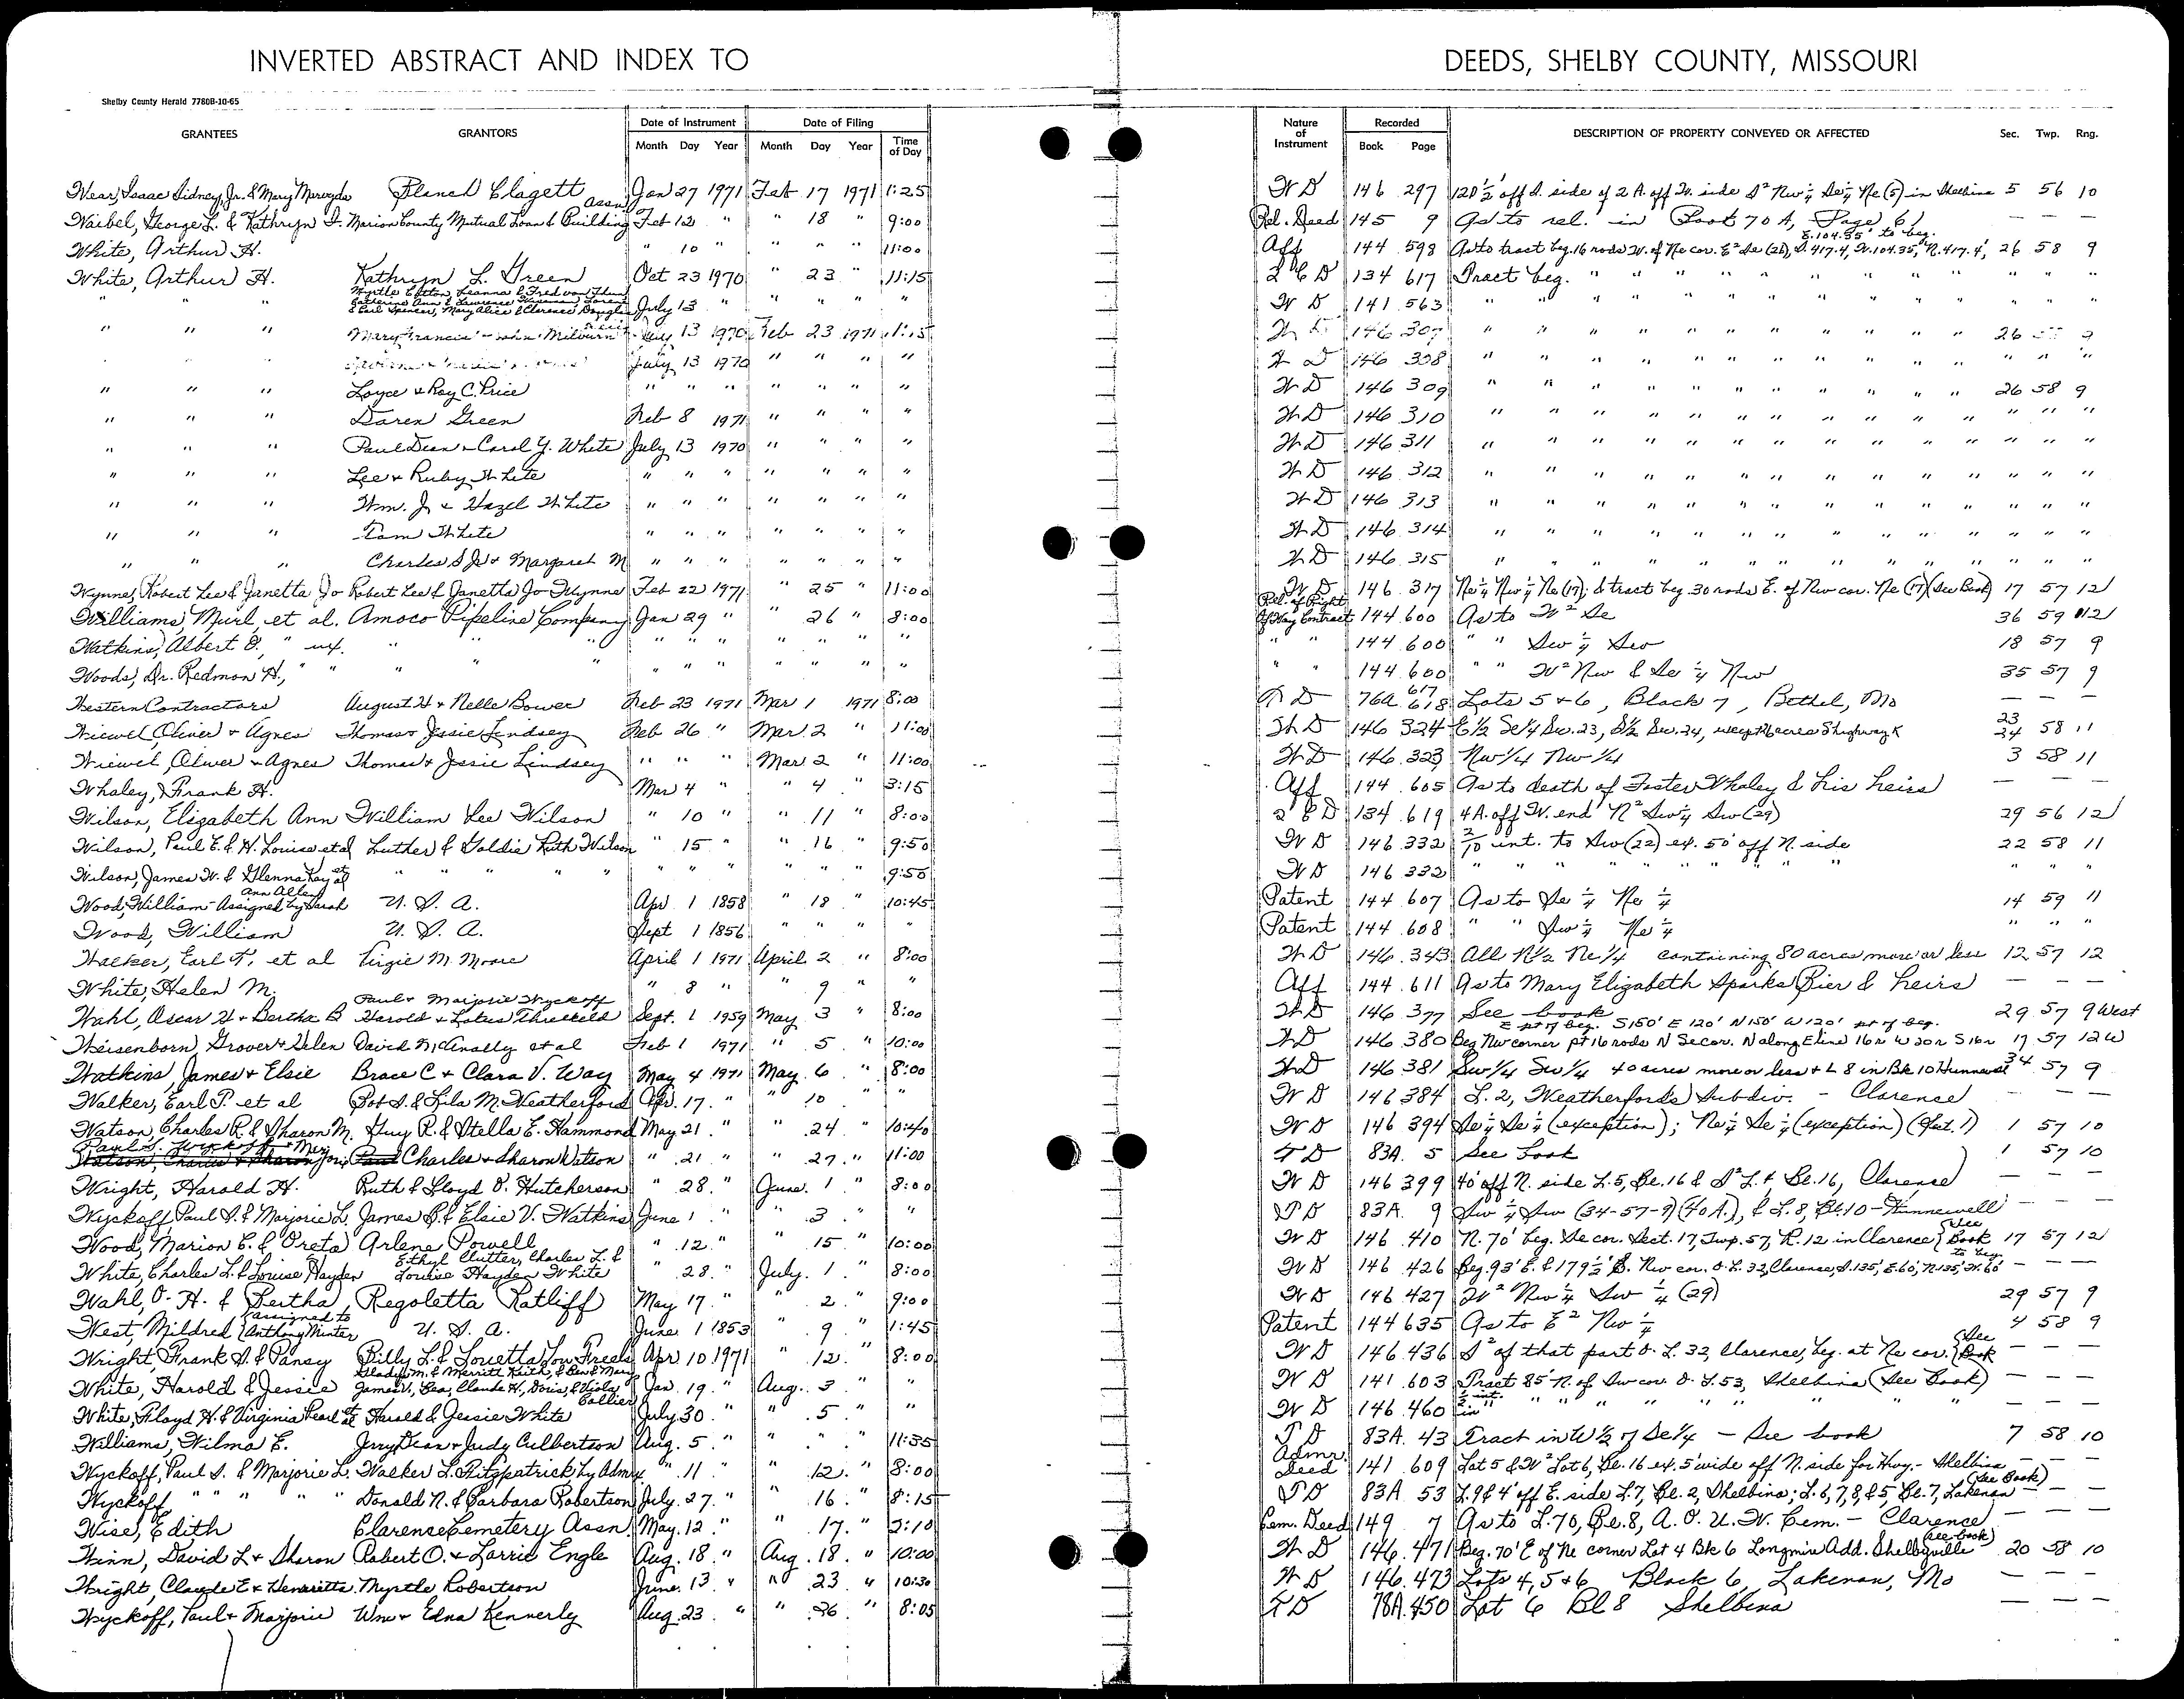 INVERTED ABSTRACT AND INDEX TO DEEDS, SHELBY COUNTY, MISSOURI
Shelby County Herald 7780B-10-65
GRANTEES GRANTORS Date of Instrument Month Day Year Date of Filing Month Day Year Time of Day Nature of Instrument Recorded Book Page DESCRIPTION OF PROPERTY CONVEYED OR AFFECTED Sec. Twp. Rng.
Wear, Isaac Sidney, Jr. & Mary Blanch Clagett Jan 27 1971 Feb 17 1971 1:25 W D 146 297 120½' off S. side of 2 A. off W. side S² Nw ¼ Se ¼ Ne (5) in Shelbina 5 56 10
Waibel, George L. & Kathryn I. Marion County Mutual Loan & Building Assn Feb 12 " " 18 " 9:00 Rel. Deed 145 9 As to rel. in Book 70 A, Page 61 — — —
White, Arthur H. " 10 " " " " 11:00 Aff 144 598 As to tract beg. 16 rods W. of Ne cor. E² Se (26), S. 417.4, W. 104.35, N. 417.4, E. 104.35' to beg. 26 58 9
White, Arthur H. Kathryn L. Green Oct 23 1970 " 23 " 11:15 2 C D 134 617 Tract beg. " " " " " " " " " " " "
" " Myrtle Cotton, Leanna & Fred Catherine Ann & Lawrence & Earl Spencer, Mary Alice & Clarence Douglas July 13 " " " " " W D 141 563 " " " " " " " " " " " " "
" " " Mary Francis Milburn July 13 1970 Feb 23 1971 1:15 W D 146 307 " " " " " " " " " " 26 9
July 13 1970 " " " " W D 146 308 " " " " " " " " " " " " "
" " " Loyce & Roy C. Price " " " " " " " W D 146 309 " " " " " " " " " " 26 58 9
" " " Daren Green Feb 8 1971 " " " " W D 146 310 " " " " " " " " " " " " "
" " " Paul Dean & Carol Y. White July 13 1970 " " " " W D 146 311 " " " " " " " " " " " " "
" " " Lee & Ruby White " " " " " " " W D 146 312 " " " " " " " " " " " " "
" " " Wm. J. & Hazel White " " " " " " " W D 146 313 " " " " " " " " " " " " "
" " " Tom White " " " " " " " W D 146 314 " " " " " " " " " " " " "
" " " Charles S Jr & Margaret M " " " " " " " W D 146 315 " " " " " " " " " " " " "
Wynne, Robert Lee & Janetta Jo Robert Lee & Janetta Jo Wynne Feb 22 1971 " 25 " 11:00 W D 146 317 Ne ¼ Nw ¼ Ne (17); & tract beg. 30 rods E. of Nw cor. Ne (17) (See Book) 17 57 12
Williams, Murl, et al. Amoco Pipeline Company Jan 29 " " 26 " 8:00 Rel. of Right Of Way Contract 144 600 As to W² Se 36 59 12
Watkins, Albert O., " ux. " " " " " " " " " " " 144 600 " " Sw ¼ Sw 18 57 9
Woods, Dr. Redmon H., " " " " " " " " " " " 144 600 " " W² Nw & Se ¼ Nw 35 57 9
Western Contractors August H & Nelle Bower Feb 23 1971 Mar 1 1971 8:00 T D 76A 617 618 Lots 5 & 6, Block 7, Bethel, Mo — — —
Wiewel, Oliver & Agnes Thomas & Jessie Lindsey Feb 26 " Mar. 2 " 11:00 W D 146 324 E ½ Se ¼ Sec. 23, S½ Sec. 24, except 16 acres S highway K 23 24 58 11
Wiewel, Oliver & Agnes Thomas & Jessie Lindsey " " " Mar 2 " 11:00 W D 146 323 Nw ¼ Nw ¼ 3 58 11
Whaley, Frank H. Mar 4 " " 4 " 3:15 Aff 144 605 As to death of Foster Whaley & his heirs — — —
Wilson, Elizabeth Ann William Lee Wilson " 10 " " 11 " 8:00 2 C D 134 619 4 A. off W. end N² Sw ¼ Sw (29) 29 56 12
Wilson, Paul E. & H. Louise et al Luther & Goldie Ruth Wilson " 15 " " 16 " 9:50 W D 146 332 2/10 int. to Sw (22) ex. 50' off N. side 22 58 11
Wilson, James W. & Glenna Kay et al " " " " " " " " " 9:50 W D 146 332 " " " " " " " " " "
Wood, William - Assigned by Sarah Ann Allen U. S. A. Apr 1 1858 " 18 " 10:45 Patent 144 607 As to Se ¼ Ne ¼ 14 59 11
Wood, William U. S. A. Sept 1 1856 " " " " Patent 144 608 " " Sw ¼ Ne ¼ " " "
Walker, Earl T. et al Virgie M. Moore April 1 1971 April 2 " 8:00 W D 146 343 All N½ Ne ¼ containing 80 acres more or less 12 57 12
White, Helen M. " 8 " " 9 " " Aff 144 611 As to Mary Elizabeth Sparks Bier & heirs — — —
Wahl, Oscar H & Bertha B Paul & Marjorie Wyckoff Harold & Lotus Threlkeld Sept. 1 1959 May 3 " 8:00 W D 146 377 See book 29 57 9 West
Weisenborn, Grover & Helen David McAnally et al Feb 1 1971 " 5 " 10:00 W D 146 380 Beg Nw corner pt 16 rods N Se cor. N along E line 16 r W 20 r S 16 r E pt of beg. S 150' E 120' N 150' W 120' pt of beg. 17 57 12 W
Watkins, James & Elsie Brace C & Clara V. Way May 4 1971 May 6 " 8:00 W D 146 381 Sw ¼ Sw ¼ 40 acres more or less & L 8 in Bk 10 Hunnewell 34 57 9
Walker, Earl T. et al Bob S. & Lila M. Weatherford Apr. 17 " " 10 " " W D 146 384 L. 2, Weatherfords Subdiv. - Clarence — — —
Watson, Charles R. & Sharon M. Guy R. & Stella E. Hammond May 21 " " 24 " 10:40 W D 146 394 Se ¼ Se ¼ (exception); Ne ¼ Se ¼ (exception) (Sect. 1) 1 57 10
Paul S. Wyckoff & Marjorie Charles & Sharon Watson " 21 " " 27 " 11:00 T D 83A 5 See book 1 57 10
Wright, Harold H. Ruth & Lloyd O. Hutcherson " 28 " June 1 " 8:00 W D 146 399 40' off N. side L. 5, Bl. 16 & S² L. 4 Bl. 16, Clarence — — —
Wyckoff, Paul S. & Marjorie L. James B. & Elsie V. Watkins June 1 " " 3 " " T D 83A 9 Sw ¼ Sw (34-57-9) (40 A.), & L. 8, Bl. 10 - Hunnewell — — —
Wood, Marion E. & Oreta Arlene Powell " 12 " " 15 " 10:00 W D 146 410 N. 70' beg. Se cor. Sect. 17, Twp. 57, R. 12 in Clarence (See Book 17 57 12
White, Charles L. & Louise Hayden Ethyl Clutter, Charles L. & Louise Hayden White " 28 " July 1 " 8:00 W D 146 426 Beg. 93' E. & 179½' S. Nw cor. O. L. 32, Clarence, S. 135', E. 60', N. 135', W. 60' to beg. — — —
Wahl, O. H. & Bertha Regoletta Ratliff May 17 " " 2 " 9:00 W D 146 427 W² Nw ¼ Sw ¼ (29) 29 57 9
West, Mildred (assigned to Anthony Minter U. S. A. June 1 1853 " 9 " 1:45 Patent 144 635 As to E² Nw ¼ 4 58 9
Wright, Frank S. & Pansy Billy L. & Louetta Lou Freels Apr 10 1971 " 12 " 8:00 W D 146 436 S² of that part O. L. 32, Clarence, beg. at Ne cor. (See Book — — —
White, Harold & Jessie Gladys M. & Merritt Keith, & Ben & Mary James V., Bea, Claude H., Doris, & Viola Collier Jan. 19 " Aug. 3 " " W D 141 603 Tract 85' N. of Sw cor. O. L. 53, Shelbina (See Book) — — —
White, Floyd H. & Virginia Pearl et al Harold & Jessie White July 30 " " 5 " " W D 146 460 ½ int. in " " " " " " " " — — —
Williams, Wilma E. Jerry Dean & Judy Culbertson Aug. 5 " " " " 11:35 T D 83A 43 Tract in W ½ of Se ¼ - See book 7 58 10
Wyckoff, Paul S. & Marjorie L. Walker L. Fitzpatrick by Admr " 11 " " 12 " 8:00 Admr. Deed 141 609 Lot 5 & W² Lot 6, Bl. 16 ex. 5' wide off N. side for Hwy. - Shelbina — — —
Wyckoff, " " " " " Donald N. & Barbara Robertson July 27 " " 16 " 8:15 T D 83A 53 L. 9 & 4' off E. side L. 7, Bl. 2, Shelbina; L. 6, 7, 8, & 5, Bl. 7, Lakenan (See Book) — — —
Wise, Edith Clarence Cemetery Assn. May 12 " " 17 " 2:10 Cem. Deed 149 7 As to L. 70, Bl. 8, A. O. U. W. Cem. - Clarence — — —
Winn, David L & Sharon Robert O. & Lorrie Engle Aug. 18 " Aug. 18 " 10:00 W D 146 471 Beg. 70' E of Ne corner Lot 4 Bk 6 Longmire Add. Shelbyville (see book) 20 58 10
Wright, Claude E & Henrietta Myrtle Robertson June 13 " " 23 " 10:30 W D 146 473 Lots 4, 5 & 6 Block 6, Lakenan, Mo — — —
Wyckoff, Paul & Marjorie Wm & Edna Kennerly Aug 23 " " 26 " 8:05 T D 78A 450 Lot 6 Bl 8 Shelbina — — —